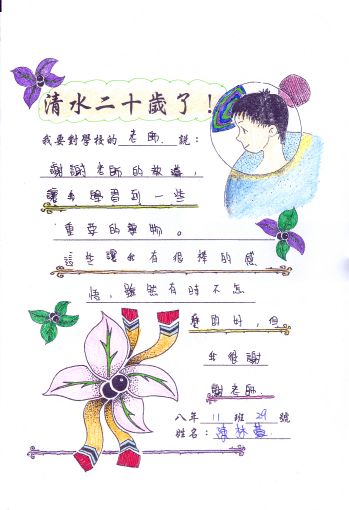 清水二十歲了！
我要對學校的 老師 說：
謝謝老師的教導，
讓我學習到一些
重要的事物。
這些讓我有很棒的感
悟，雖然有時不怎
麼的好，但
我很謝
謝老師.
八年 11 班 29 號
姓名：